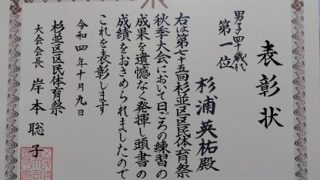 表彰状
男子四十歳代
第一位
杉浦英祐殿
右は第六十五回杉並区区民体育祭
秋季大会において日ごろの練習の
成果を遺憾なく発揮し頭書の
成績をおさめられましたので
これを表彰します
令和四年十月九日
杉並区区民体育祭
大会会長 岸本聡子